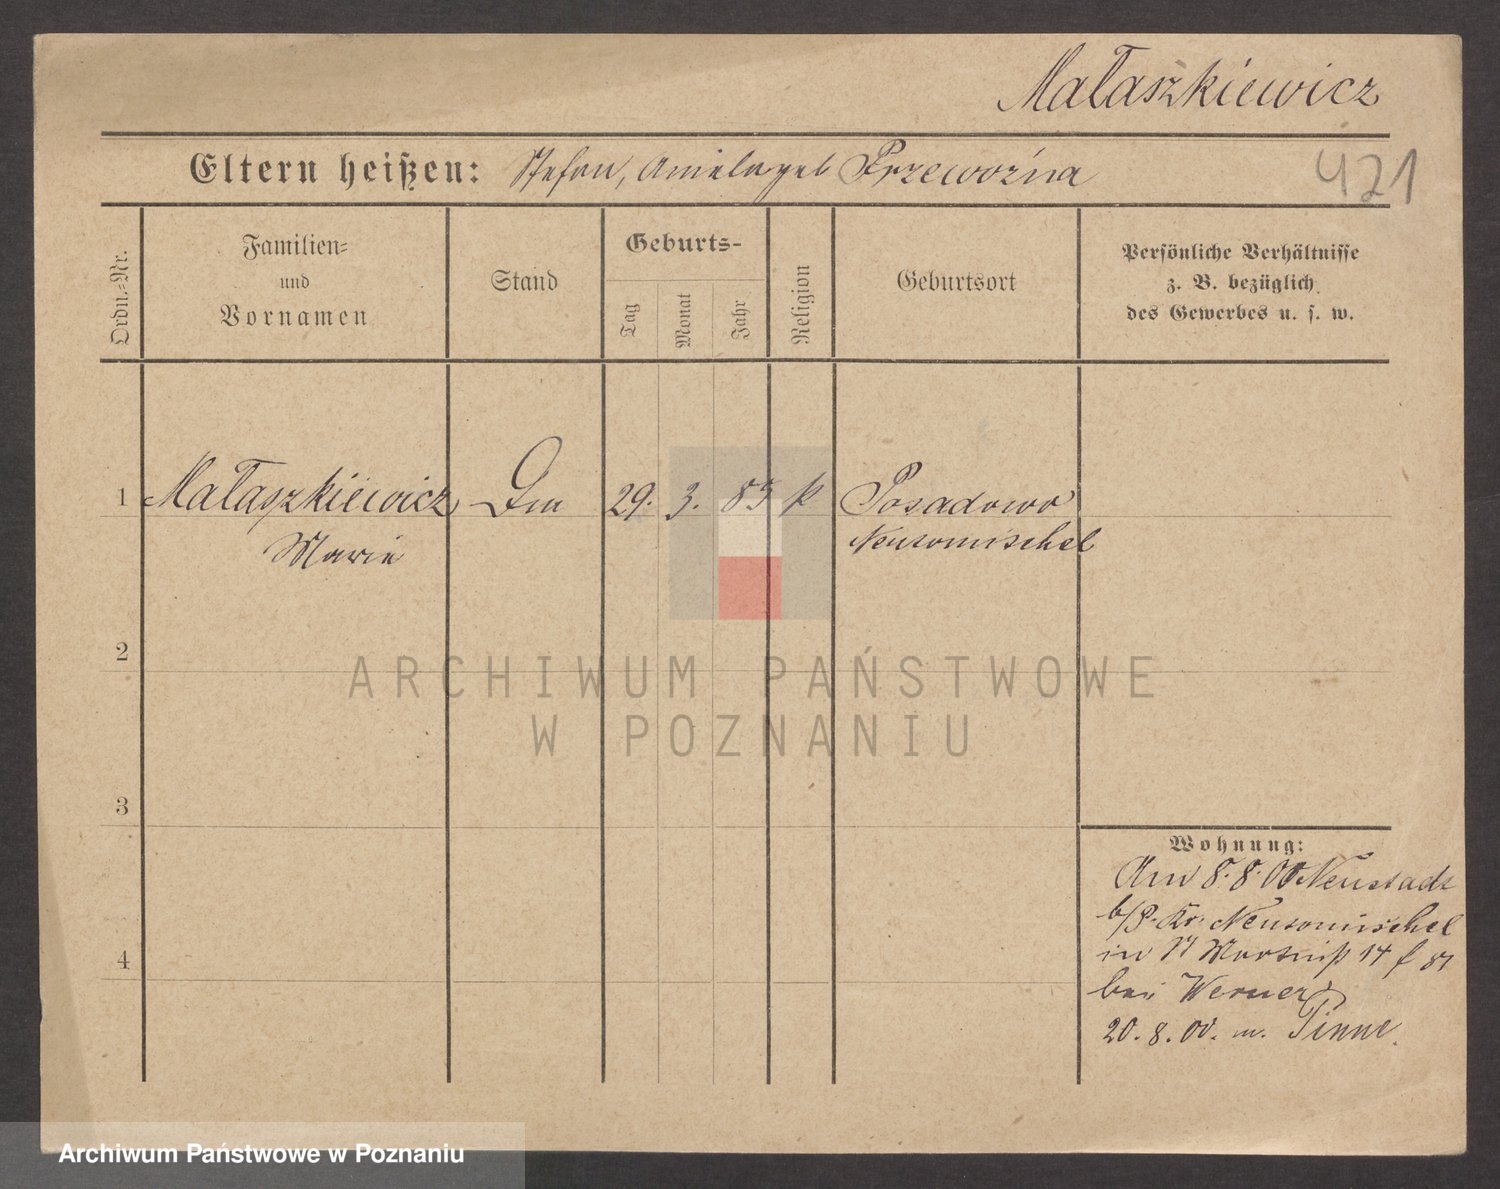 Małaszkiewicz
Eltern heißen: Stefan, Aniela geb Przewoźna
421
Ordn.-Nr.
Familien-
und
Vornamen
Stand
Geburts-
Tag
Monat
Jahr
Religion
Geburtsort
Persönliche Verhältnisse
z. B. bezüglich
des Gewerbes u. s. w.
1 Małaszkiewicz 29. 3. 83 k Posadowo
Marie Neutomischel
2
ARCHIWUM PAŃSTWOWE
W POZNANIU
3
Wohnung:
Am 8.8.00 Neustadt
b/P. Kr. Neutomischel
in 14
4
bei Werner
20.8.00. n. Pinne.
Archiwum Państwowe w Poznaniu